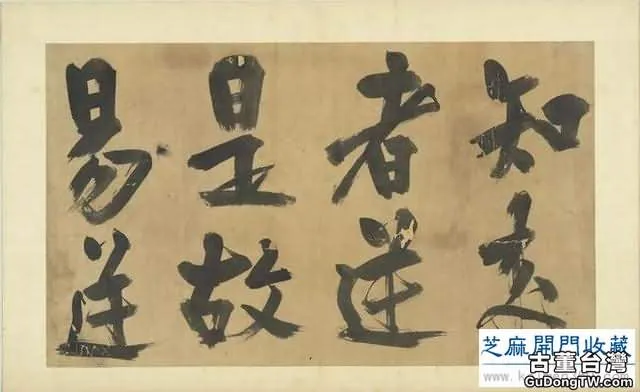 知來
者逆
是故
易逆
芝麻開門收藏
古董台灣
GuDongTW.com